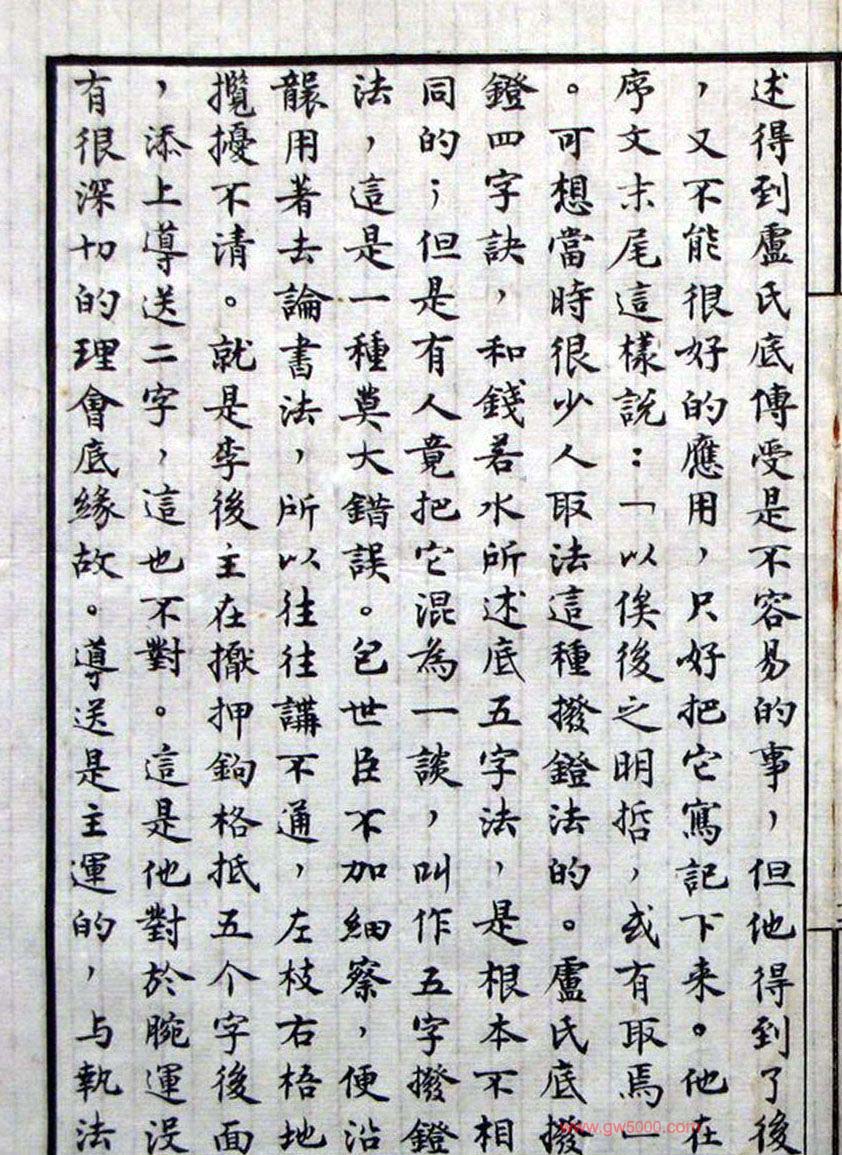 述得到盧氏底傳受是不容易的事，但他得到了後
，又不能很好的應用，只好把它寫記下来。他在
序文末尾這樣說：「以俟後之明哲，或有取焉」
。可想當時很少人取法這種撥鐙法的。盧氏底撥
鐙四字訣，和錢若水所述底五字法，是根本不相
同的；但是有人竟把它混為一談，叫作五字撥鐙
法，這是一種莫大錯誤。包世臣不加細察，便沿
襲用著去論書法，所以往往講不通，左枝右梧地
攬擾不清。就是李後主在擫押鉤格抵五个字後面
，添上導送二字，這也不對。這是他對於腕運没
有很深切的理會底緣故。導送是主運的，与執法
www.gw5000.com